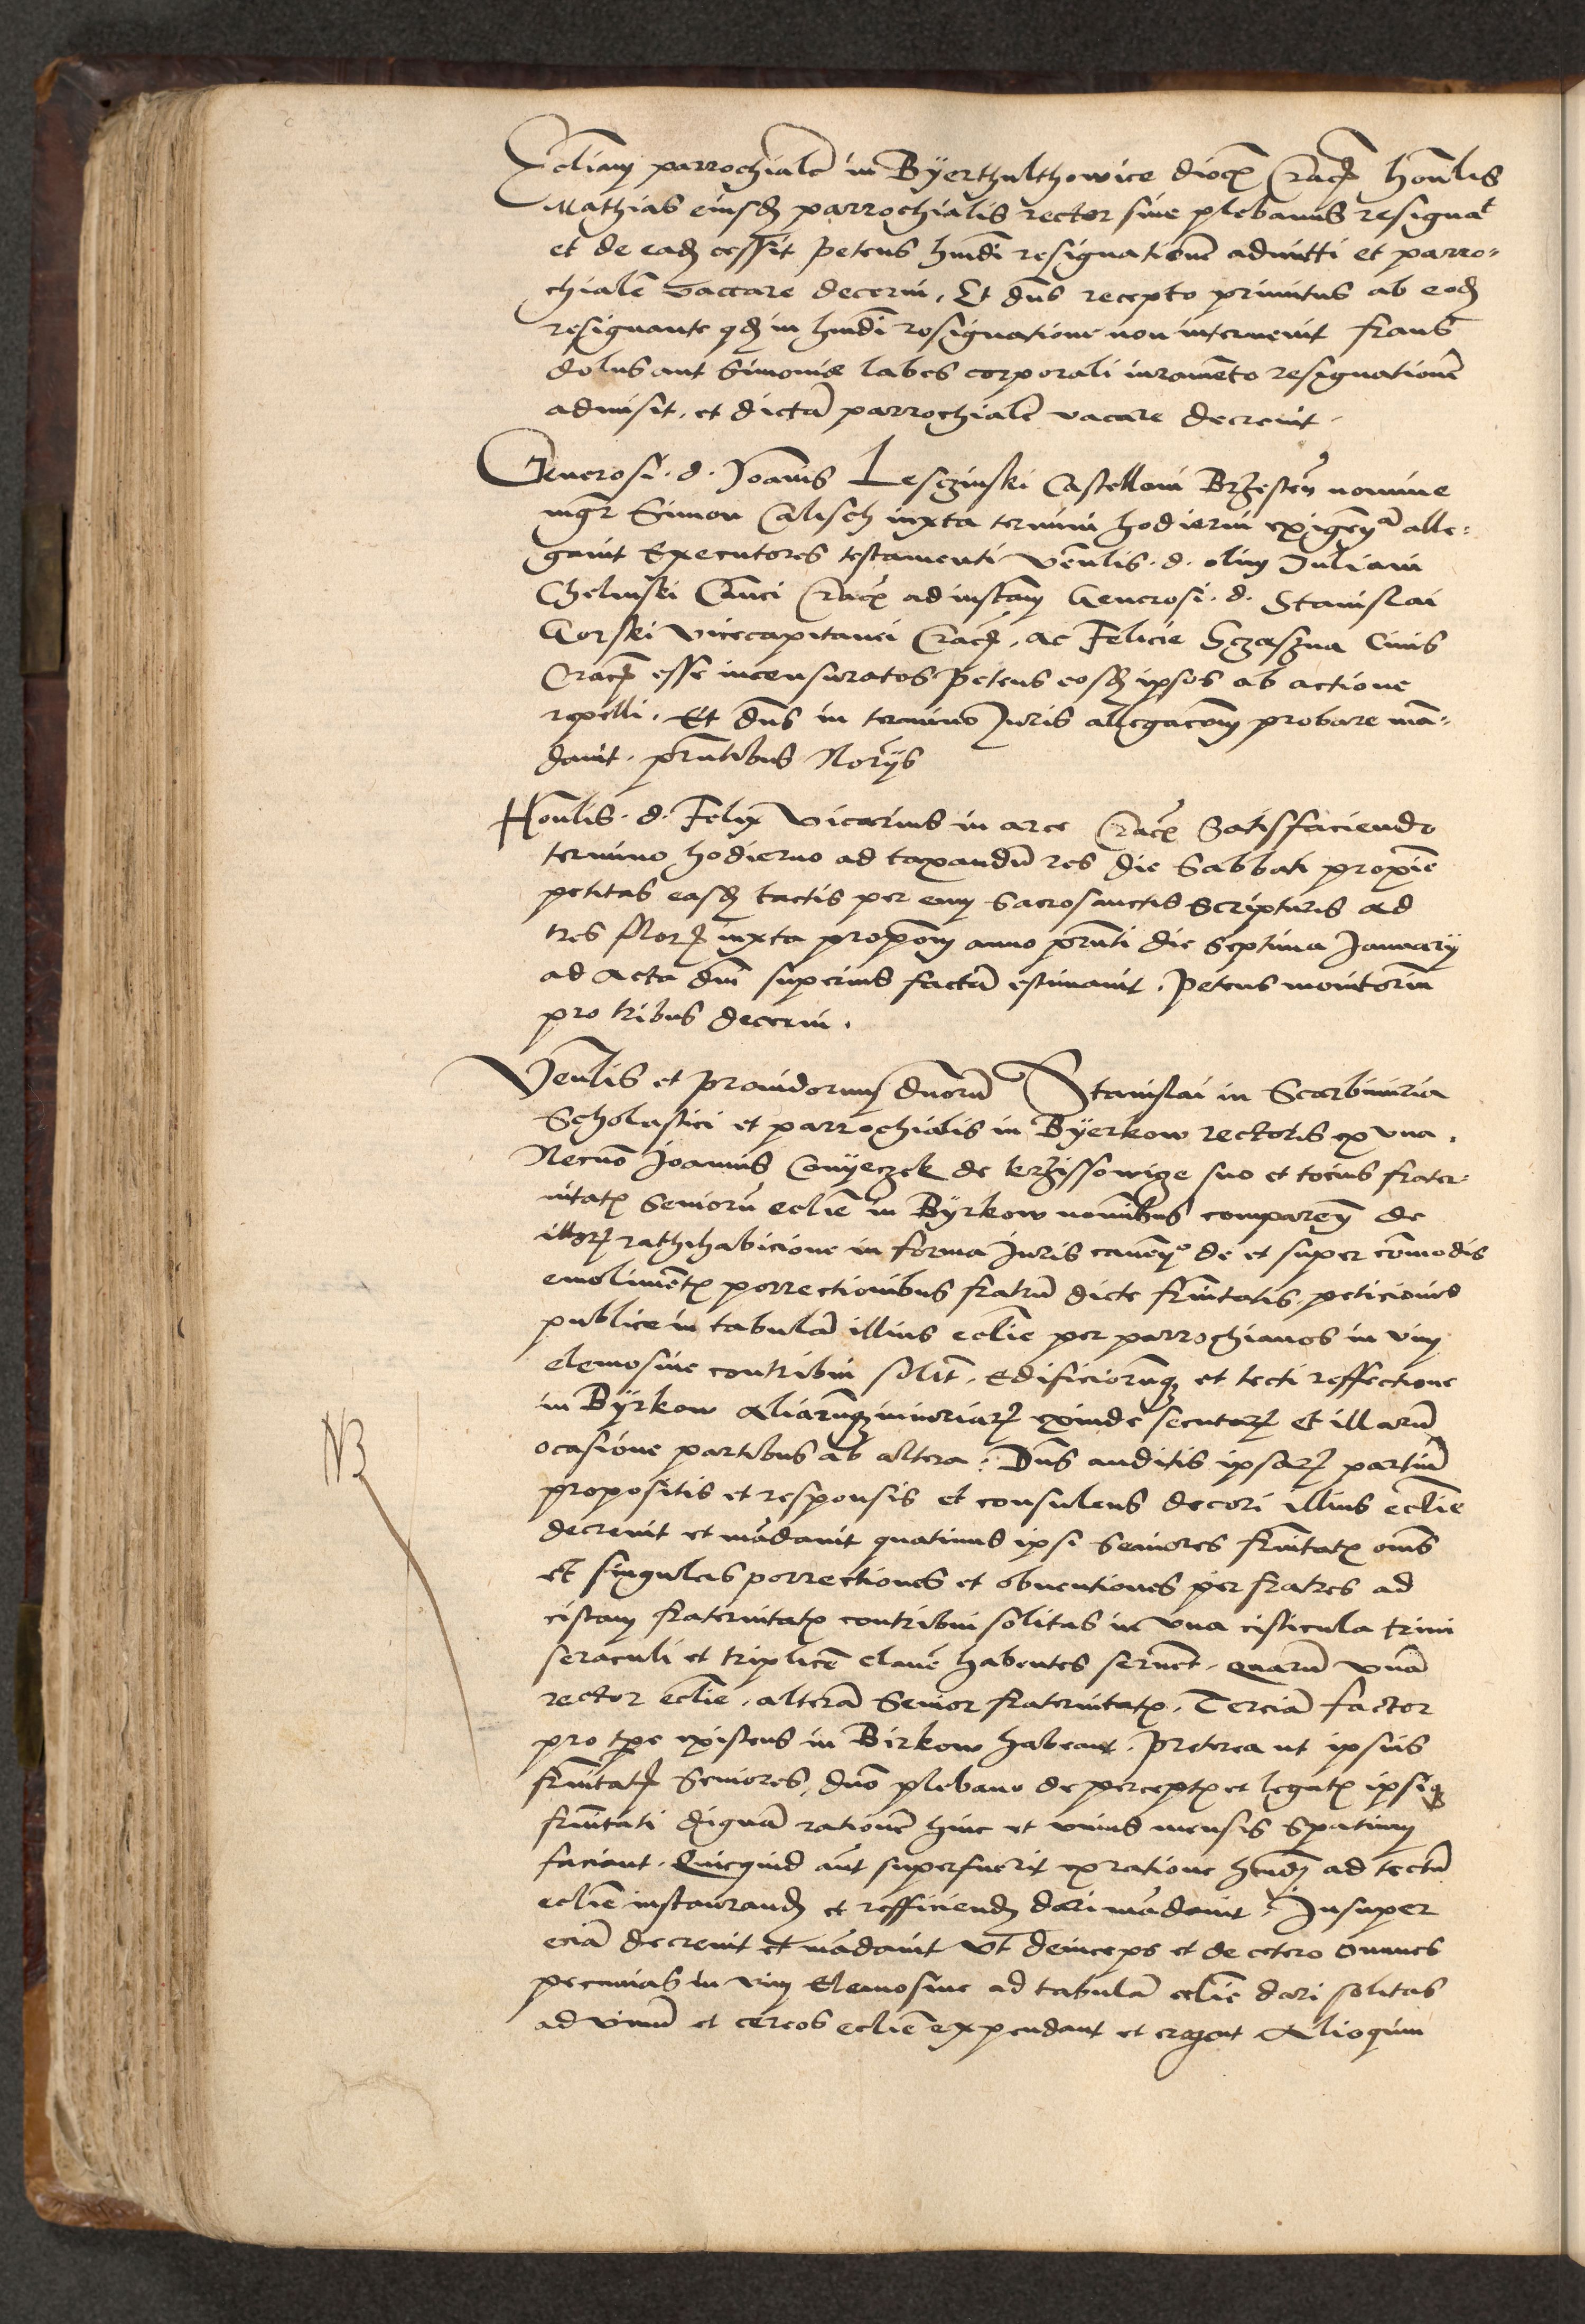 Eccliam parrochiale in Byerthulthowice dioc Crac honlis
Mathias eiusd parrochialis rector sive plebanus resignat
et de ead cessit petens hmoi resignatione admitti et parro-
chiale vaccare decerni. Et dns recepto primitus ab eod
resignante qd in hmoi resignatione non intervenit fraus
dolus aut Simonie labes corporali iuramento resignatione
admisit. et dicta parrochiale vacare decrevit.
Generosi. d. Joanis Lesczinski Castellani Brzesten nomine
mgr Simon Calisch iuxta termini hodierni exigen alle-
gavit Executores testamenti venlis. d. olim Juliani
Chelmski Canci Crac ad instam Generosi. d. Stanislai
Gorski vicecapitanei Crac, ac Felicie Sczaszna Civis
Crac esse incensuratos petens eosd ipsos ab actione
repelli. Et dns in termino Juris allegacom probare ma-
davit. pntibus Noriis
Honlis. d. Felix vicarius in arce Crac Satisfaciendo
termino hodierno ad taxandu res die Sabbati proxie
petitas easd tactis per eum Sacrosanctis Scripturis ad
tres flor iuxta propom anno pnti die Septima Januarii
ad acta dni superius facta estimavit. petens monitoriu
pro tribus decerni.
Venlis et providorum dnoru Stanislai in Scarbimiria
Scholastici et parrochialis in Byerkow rectoris ex una.
Necno Joannis Conyeczek de krzissowize suo et tocius frater-
nitat Senioru ecclie in Byrkow nominibus comparen de
illor rathihabicione in forma Juris caven de et super comodis
emoliment porrectionibus fratru dicte frnitatis. peticionis
publice in tabula illius ecclie per parrochianos in vim
elemosine contribui solit. Edificiorumq et tecti reffectione
in Byrkow Aliarumq iniuriar exinde secutar et illaru
ocasione partibus ab altera. Dns auditis ipsar partiu
propositis et responsis et consulens decori illius ecclie
decrevit et madavit quatinus ipsi Seniores frnitat oms
et singulas porrectiones et obventiones per fratres ad
cistam fraternitat contribui solitas in una cisticula trini
seraculi et triplice clave habentes servent. quaru una
rector ecclie. altera Senior fraternitat. Tercia factor
pro tpe existens in Birkow habeant. preterea ut ipsius
frnitat Seniores, dno plebano de percept et legat ipsiq
frnitati digna ratione hinc et unius mensis spatium
faciant. Quicquid aut superfuerit ex ratione hmoi ad tectu
ecclie instaurand et refficiend dari madavit. Insuper
ecia decrevit et madavit ut deinceps et de cetero omnes
pecunias in vim Elemosine ad tabula ecclie dari solitas
ad vinu et cereos ecclie expendant et Alioquin
NB